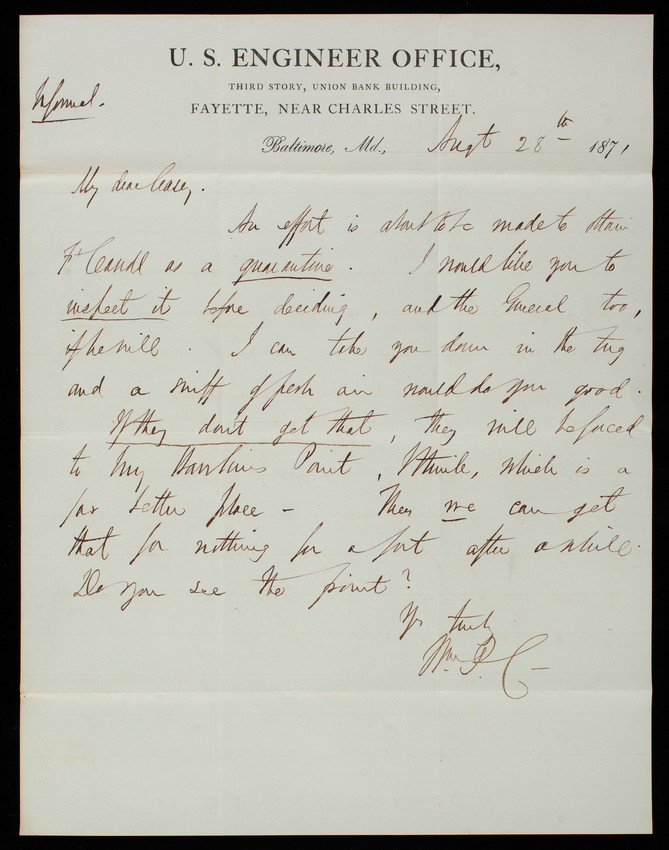 U. S. ENGINEER OFFICE,
THIRD STORY, UNION BANK BUILDING,
FAYETTE, NEAR CHARLES STREET.
Informal.
Baltimore, Md., Augt 28th 1871
My dear Casey.
An effort is about to be made to obtain
Ft Carroll as a quarantine. I would like you to
inspect it before deciding, and the General too,
if he will. I can take you down in the tug
and a sniff of fresh air would do you good.
If they don't get that, they will be forced
to buy Hawkins Point, I think, which is a
far better place – Then we can get
that for nothing for a fort after a while.
Do you see the point?
Yrs truly
Wm. P. C–